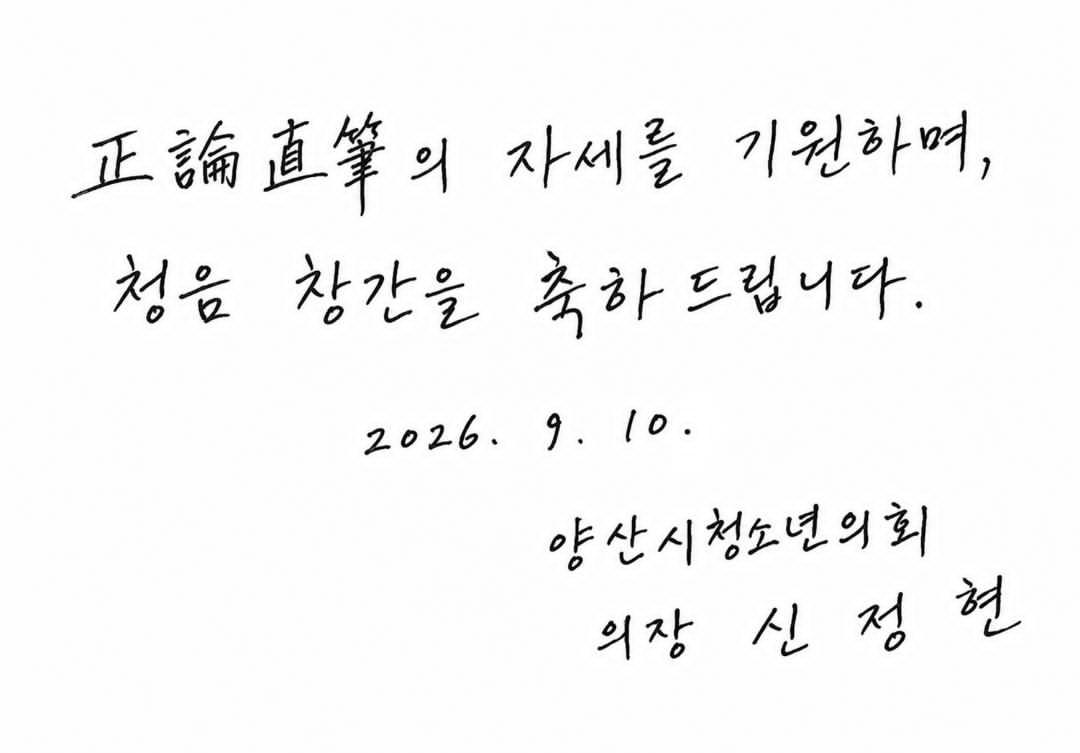 正論直筆의 자세를 기원하며,
청음 창간을 축하드립니다.
2026. 9. 10.
양산시청소년의회
의장 신정현